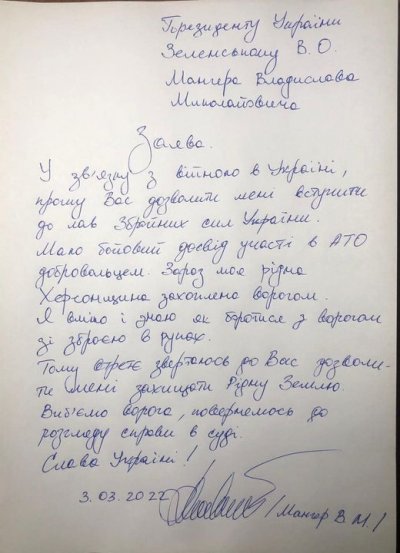 Президенту України
Зеленському В. О.
Мангера Владислава
Миколайовича
Заява.
У зв'язку з війною в Україні,
прошу Вас дозволити мені вступити
до лав Збройних сил України.
Маю бойовий досвід участі в АТО
добровольцем. Зараз моя рідна
Херсонщина захоплена ворогом.
Я вмію і знаю як боротися з ворогом
зі зброєю в руках.
Тому звертаюсь до Вас дозволи-
ти мені захищати Рідну Землю.
Виб'ємо ворога, повернемось до
розгляду справи в суді.
Слава Україні!
3.03.2022 /Мангер В. М./